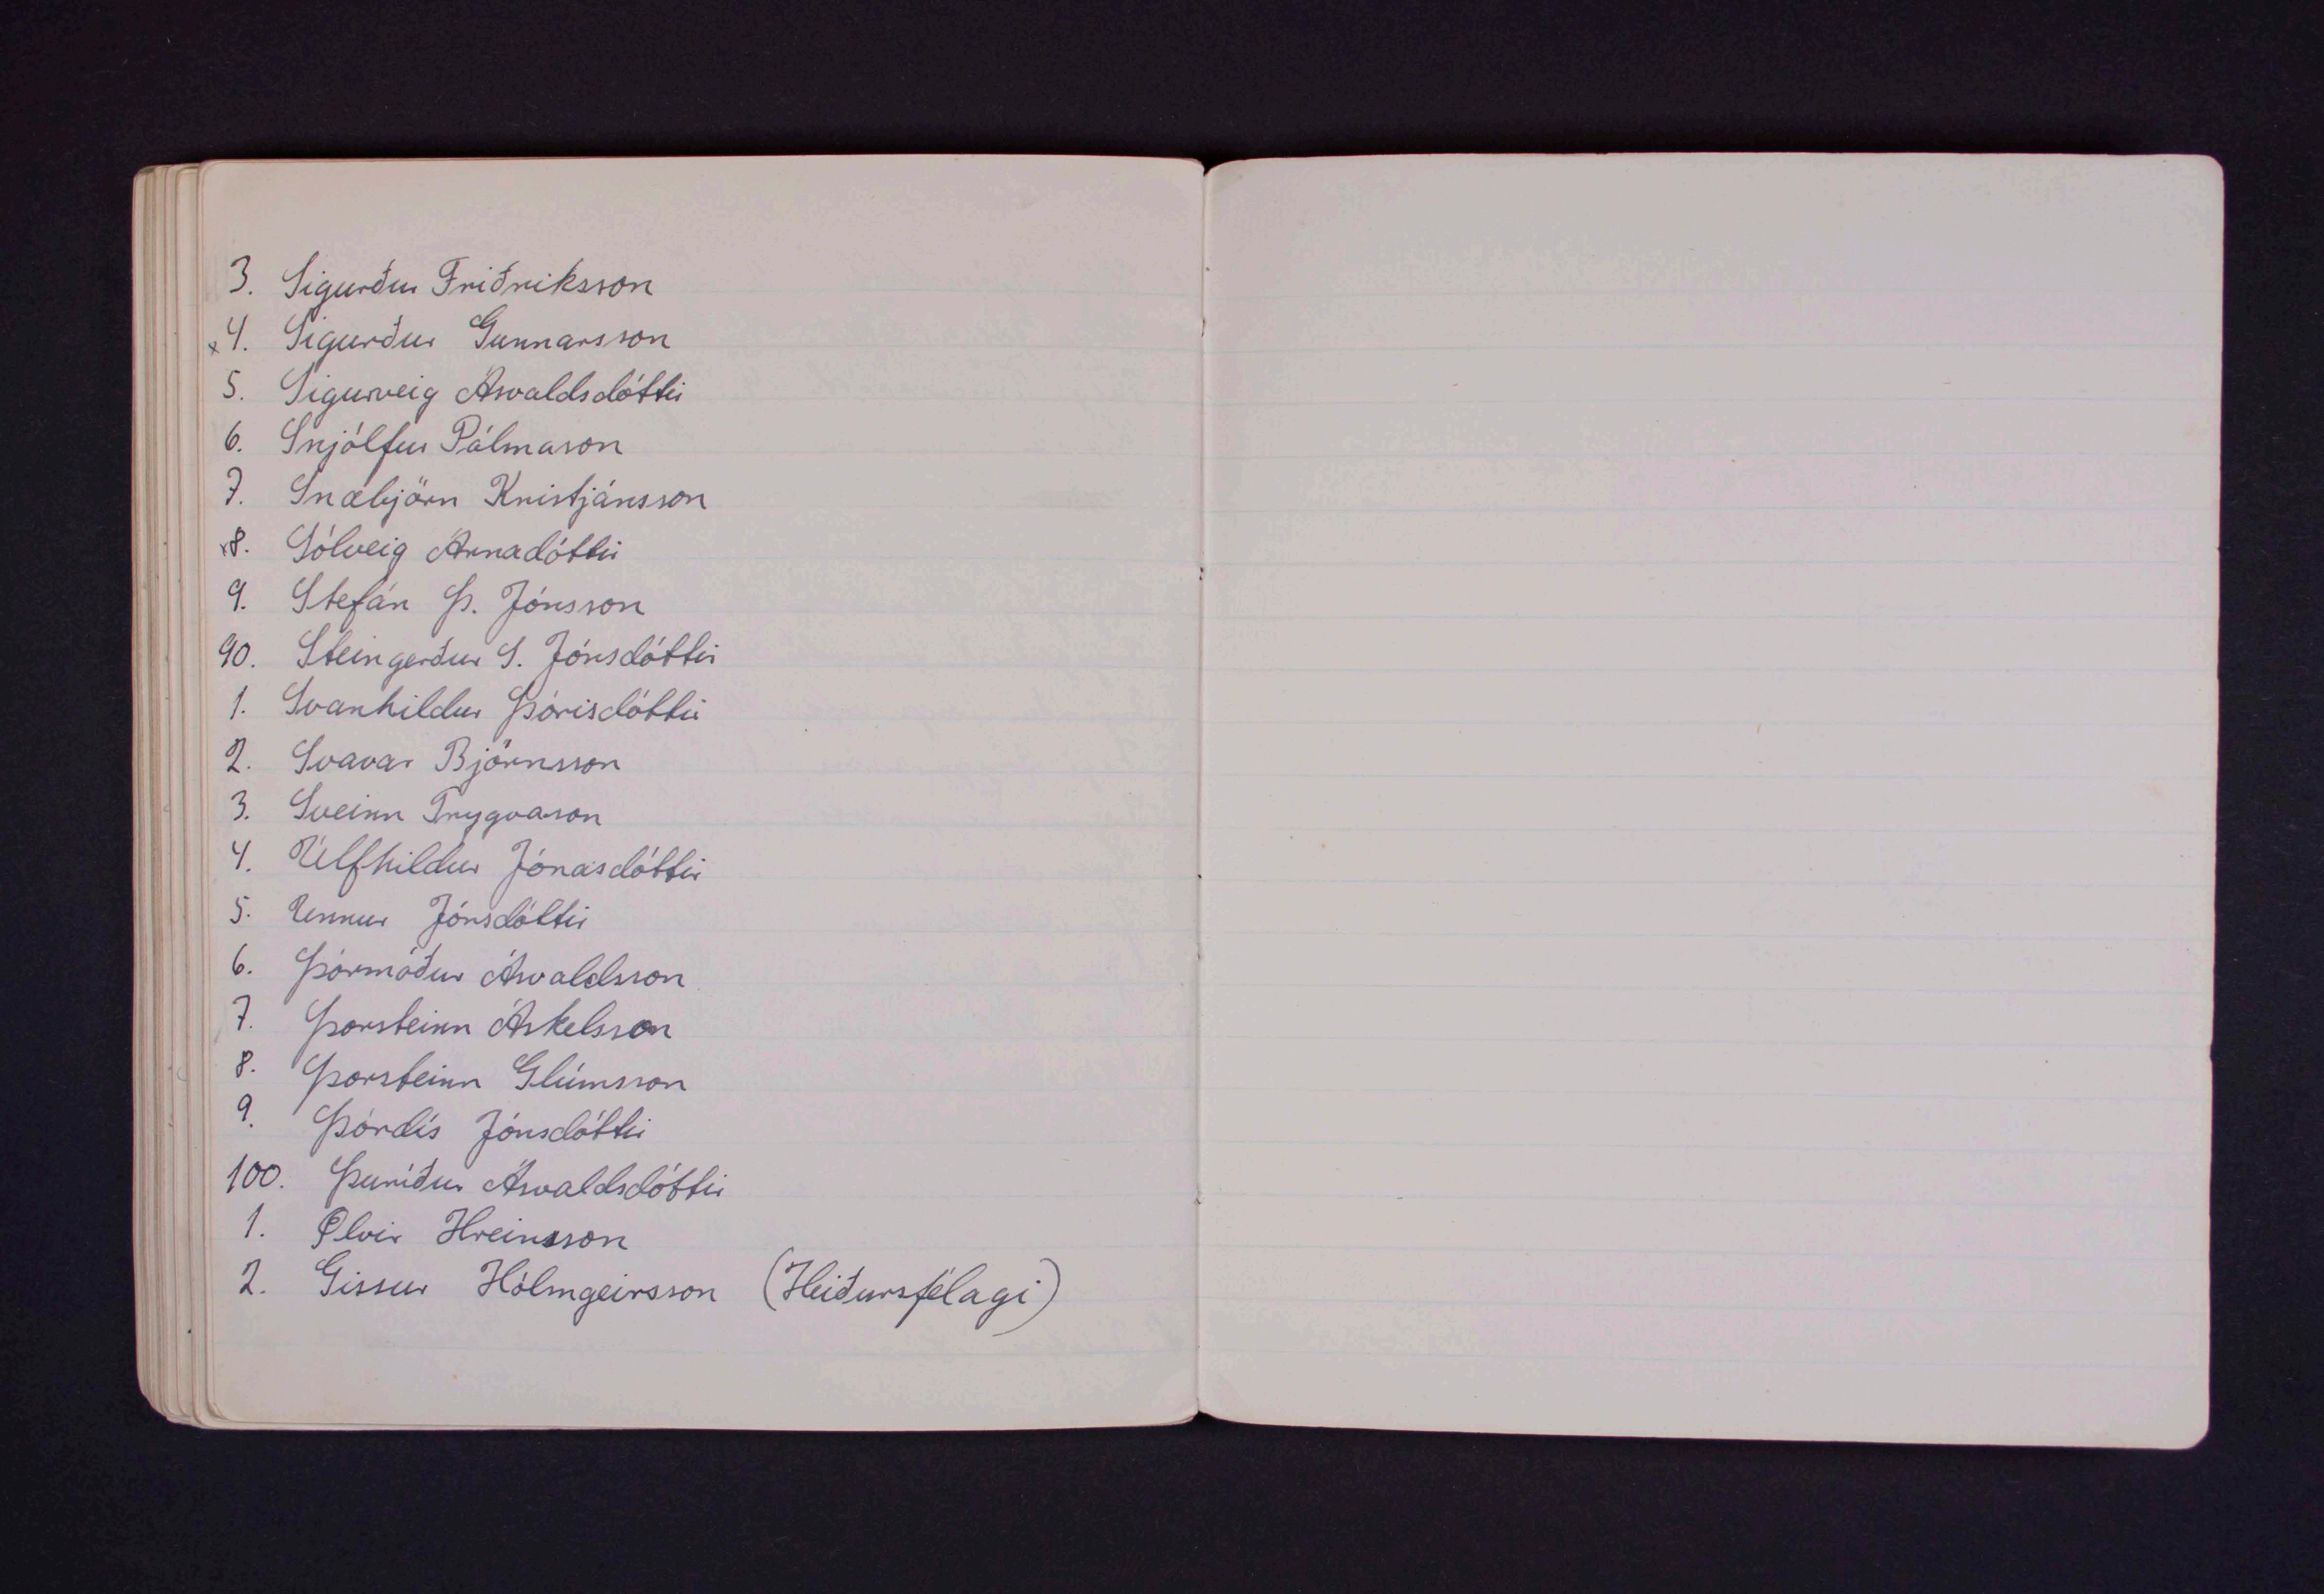 3. Sigurður Friðriksson
x4. Sigurður Gunnarsson
5. Sigurveig Ásvaldsdóttir
6. Snjólfur Pálmason
7. Snæbjörn Kristjánsson
x8. Sólveig Árnadóttir
9. Stefán Þ. Jónsson
90. Steingerður S. Jónsdóttir
1. Svanhildur Þórisdóttir
2. Svavar Björnsson
3. Sveinn Trygvason
4. Úlfhildur Jónasdóttir
5. Unnur Jónsdóttir
6. Þórmóður Ásvaldsson
7. Þorsteinn Áskelsson
8. Þorsteinn Glúmsson
9. Þórdís Jónsdóttir
100. Þuríður Ásvaldsdóttir
1. Ølvir Hreinsson
2. Gissur Hólmgeirsson (Heiðursfélagi)